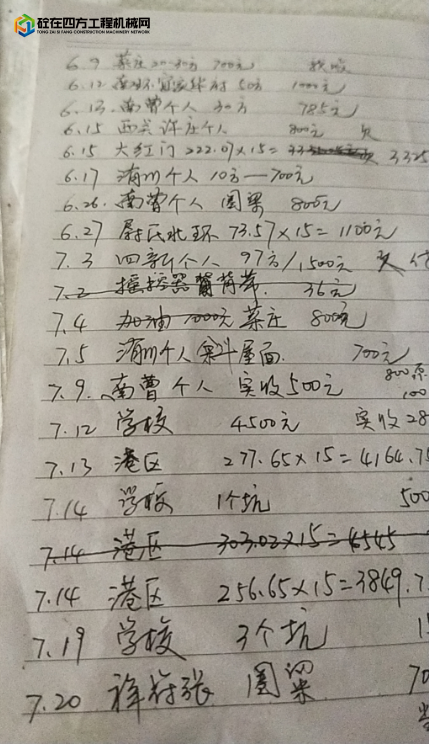 砼在四方工程机械网
TONG ZAI SI FANG CONSTRUCTION MACHINERY NETWORK
6.9 菜庄 20-30方 700元
6.12 南环 50方 1000元
6.13 南曹个人 30方 785元
6.15 西关许庄个人 800元 欠
6.15 大红门 222.07×15= 3325
6.17 洧川个人 10方—700元
6.26. 南曹个人 圈梁 800元
6.27 尉氏北环 73.57×15=1100元
7.3 四新个人 97方/1500元 欠
7.2 摇控器背带 36元
7.4 加油1000元 菜庄 800元
7.5 洧川个人斜屋面. 700元
800原
7.9. 南曹个人 实收500元 100
7.12 学校 4500元 实收28
7.13 港区 277.65×15=4164.75
7.14 学校 1个坑 500
7.14 港区 303.02×15=4545
7.14 港区 256.65×15=3849.7
7.19 学校 3个坑 1
7.20 圈梁 70